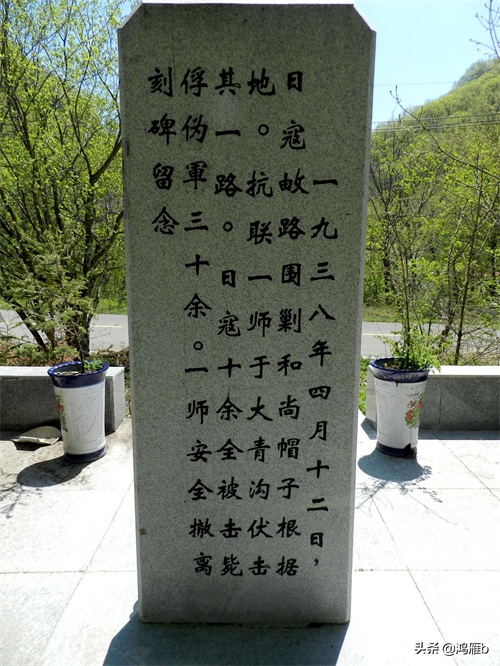 一九三八年四月十二日，
日寇路围剿和尚帽子根据
地。抗联一师于大青沟伏击
其一路。日寇十余全被击毙
俘伪軍三十余。一师安全撤离
刻碑留念
头条 @鸿雁b